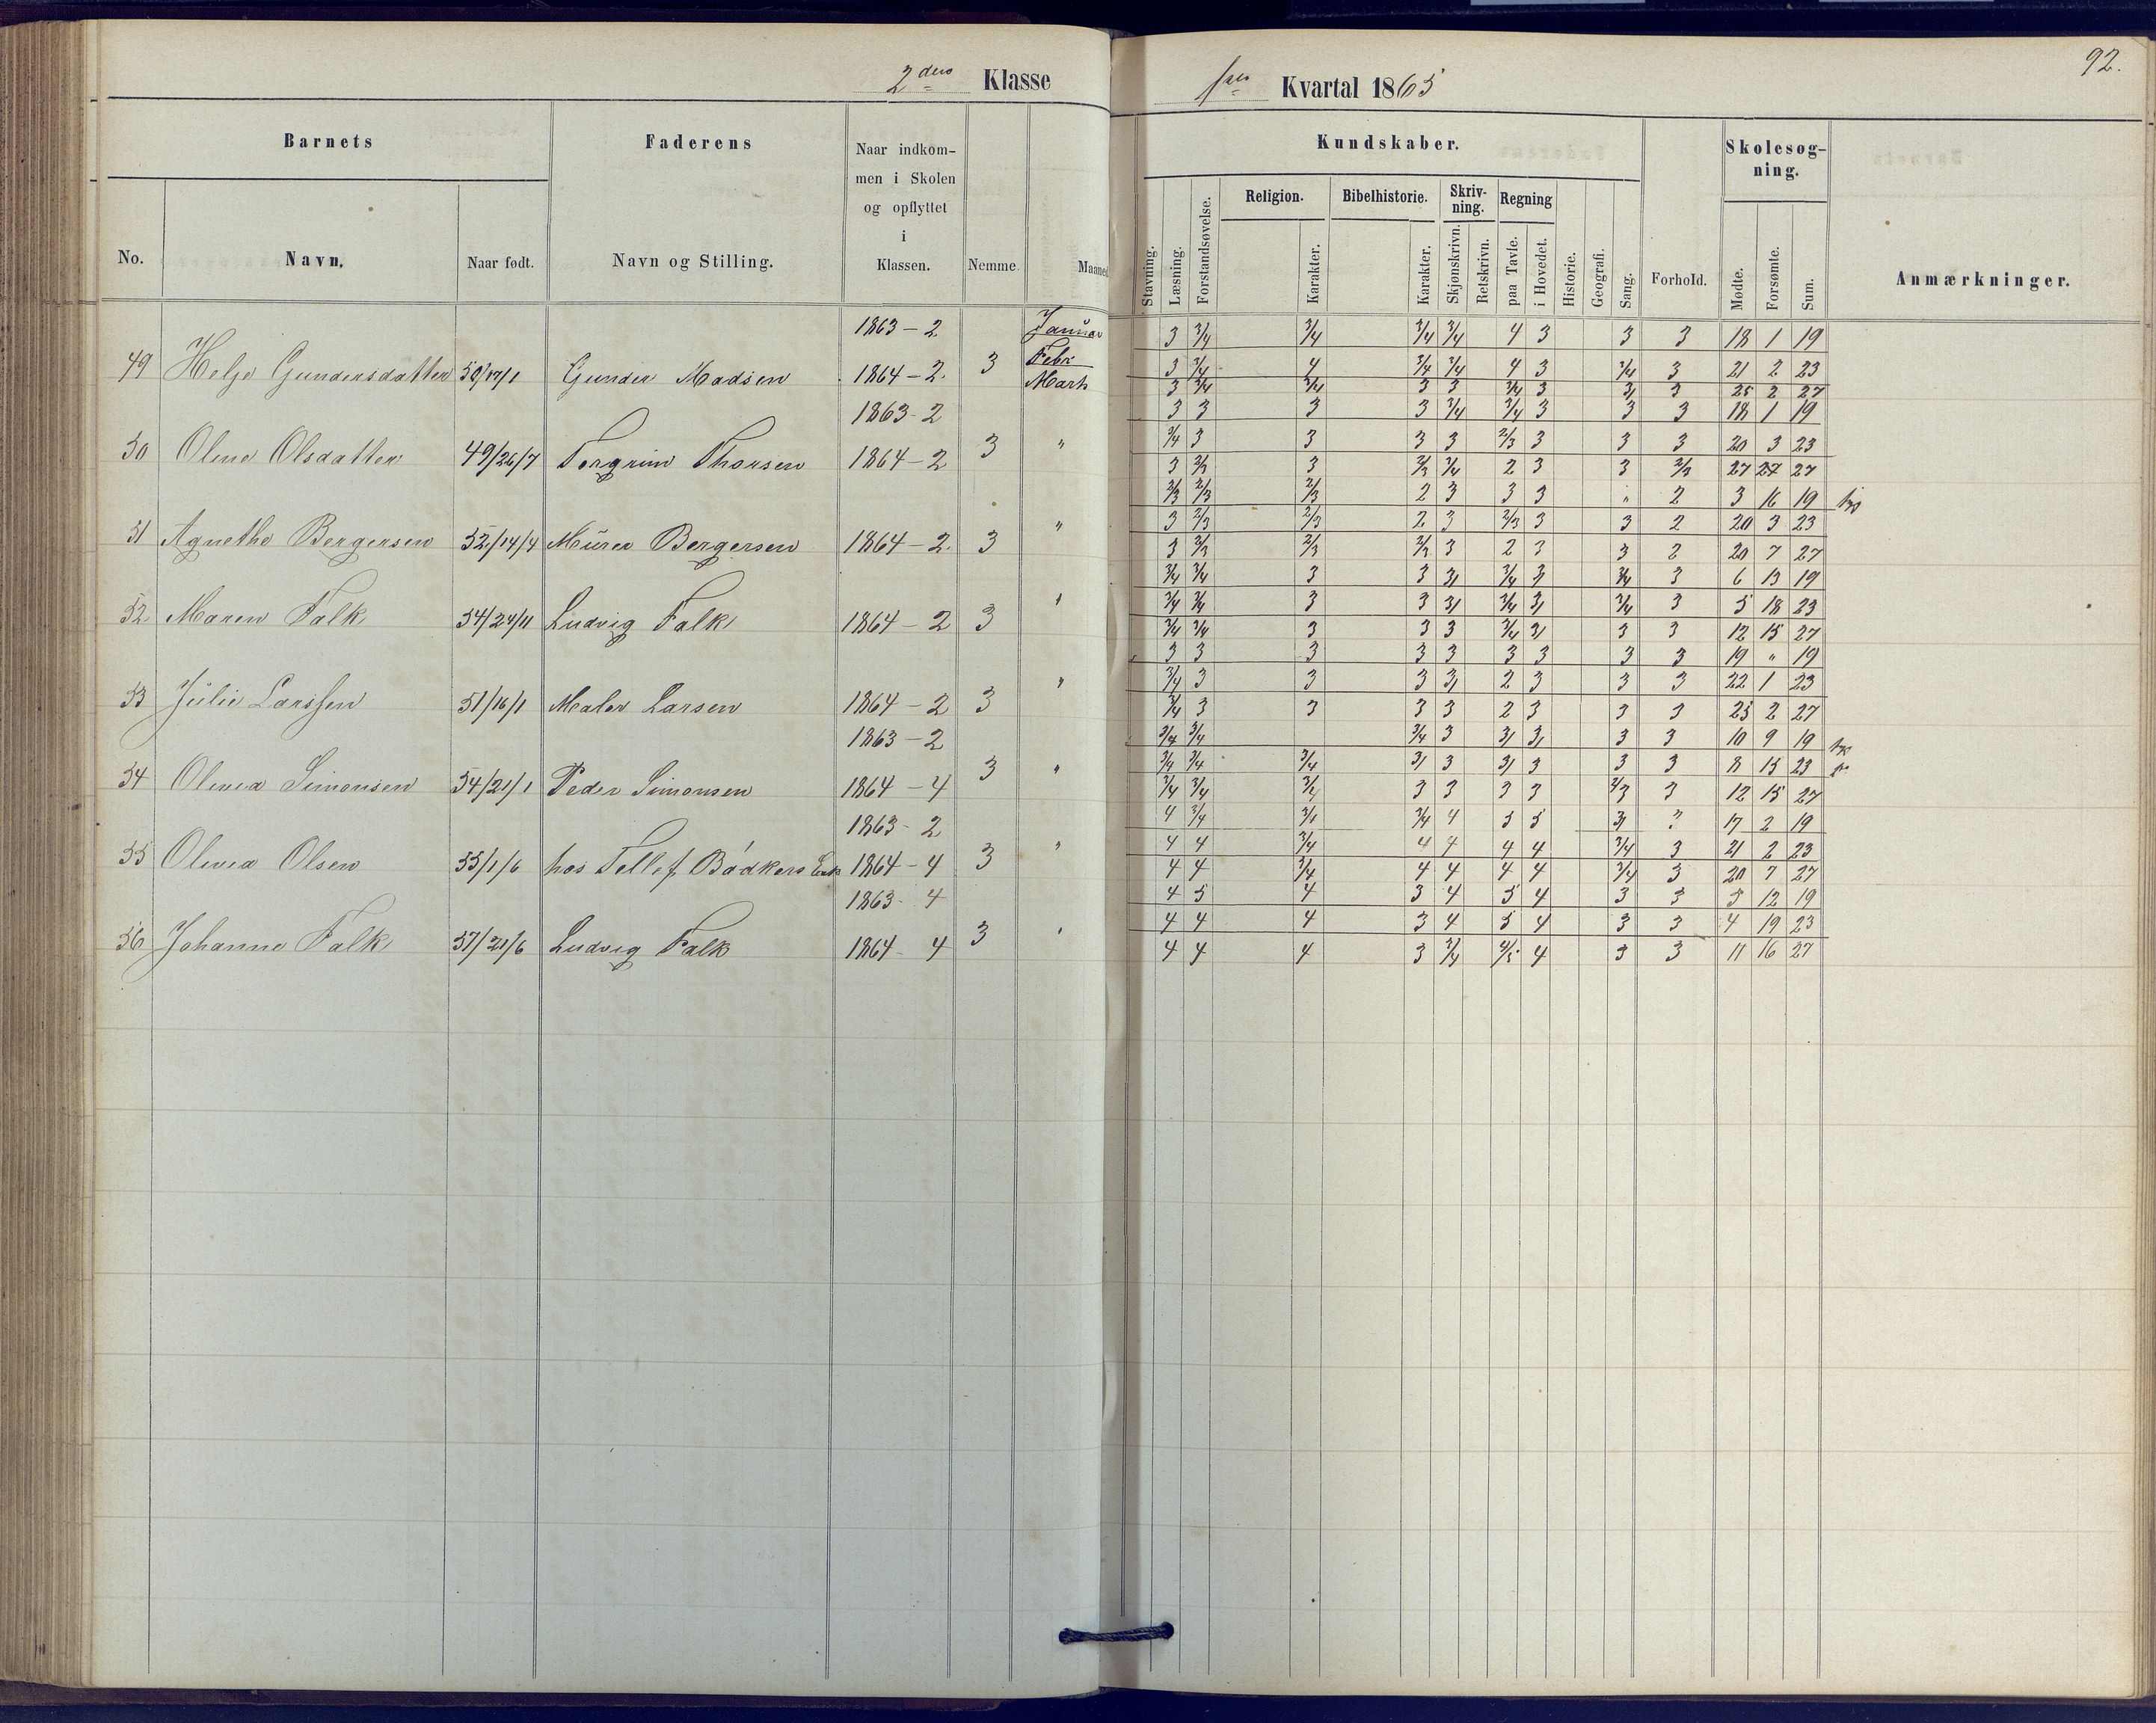 92.
2den Klasse 1ste Kvartal 1865
Barnets Faderens Naar indkommen i Skolen og opflyttet i Klassen. Nemme. Maaned Kundskaber. Forhold. Skolesøgning. Anmærkninger.
No. Navn. Naar født. Navn og Stilling. Stavning. Læsning. Forstandsøvelse. Religion. Karakter. Bibelhistorie. Karakter. Skrivning. Skjønskrivn. Retskrivn. Regning paa Tavle. i Hovedet. Historie. Geografi. Sang. Mødte. Forsømte. Sum.
1863-2 Januar 3 3/4 3/4 3/4 3/4 4 3 3 3 18 1 19
49 Helge Gundersdatter 50/17/1 Gunder Madsen 1864-2. 3 Febr 3 3/4 4 3/4 3/4 4 3 3/4 3 21 2 23
Marts 3 3/4 3/4 3 3 3/4 3 3 3 25 2 27
1863-2 3 3 3 3 3/4 3/4 3 3 3 18 1 19
50 Oline Olsdatter 49/26/7 Torgrim Thorsen 1864-2 3 " 3/4 3 3 3 3 2/3 3 3 3 20 3 23
3 2/3 3 2/3 3/4 2 3 3 2/3 27 27 27
2/3 2/3 2/3 2 3 3 3 " 2 3 16 19
51 Agnethe Bergersen 52/14/4 Murer Bergersen 1864-2. 3 " 3 2/3 2/3 2 3 2/3 3 3 2 20 3 23
3 2/3 2/3 2/3 3 2 3 3 2 20 7 27
3/4 3/4 3 3 3 3/4 3 3/4 3 6 13 19
52 Maren Falk 54/24/11 Ludvig Falk 1864-2 3 " 3/4 3/4 3 3 3 3/4 3 3/4 3 5 18 23
3/4 3/4 3 3 3 3/4 3 3 3 12 15 27
3 3 3 3 3 3 3 3 3 19 " 19
53 Julie Larssen 51/16/1 Maler Larsen 1864-2 3 " 3/4 3 3 3 3 2 3 3 3 22 1 23
3/4 3 3 3 3 2 3 3 3 25 2 27
1863-2 3/4 3/4 3/4 3 3 3 3 3 10 9 19
54 Olivia Simonsen 54/21/1 Peder Simonsen 1864-4 3 " 3/4 3/4 3/4 3 3 3 3 3 3 8 15 23
3/4 3/4 3/4 3 3 3 3 2/3 3 12 15 27
1863-2 4 3/4 3/4 3/4 4 5 5 3 3 17 2 19
55 Olivia Olsen 55/1/6 hos Tellef Bødkers Enke 1864-4 3 " 4 4 3/4 4 4 4 4 3/4 3 21 2 23
4 4 3/4 4 4 4 4 3/4 3 20 7 27
1863-4 4 5 4 3 4 5 4 3 3 3 12 19
56 Johanne Falk 57/21/6 Ludvig Falk 1864-4 3 " 4 4 4 3 4 5 4 3 3 4 19 23
4 4 4 3 3/4 4/5 4 3 3 11 16 27